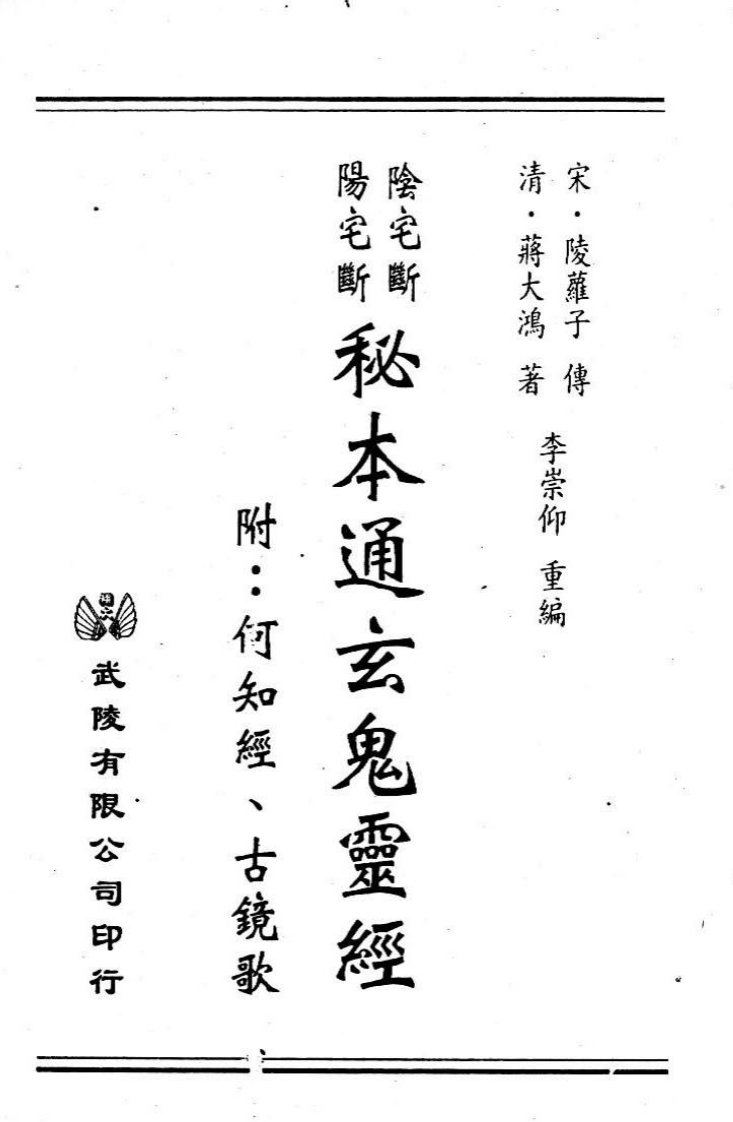 宋・陵蘿子 傳
清・蔣大鴻 著
李崇仰 重編
陰宅斷
陽宅斷
秘本通玄鬼靈經
附：何知經、古鏡歌
武陵有限公司印行